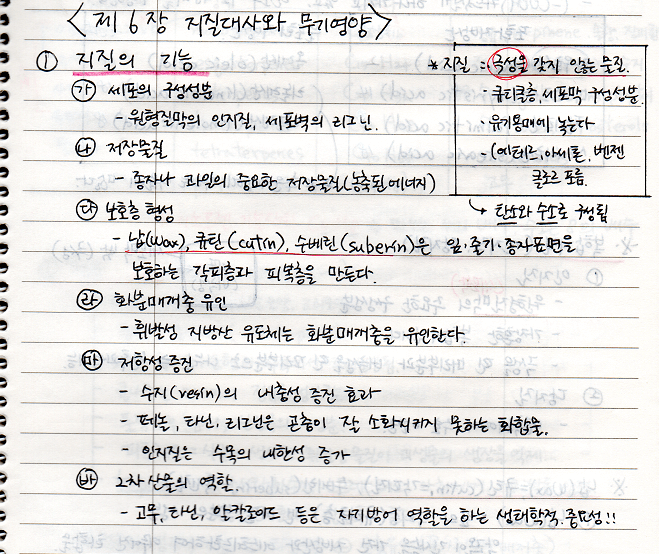 < 제 6장 지질대사와 무기영양 >
① 지질의 기능
* 지질 : 극성을 갖지 않는 물질.
- 큐티클층, 세포막 구성성분.
- 유기용매에 녹는다
- (에테르, 아세톤, 벤젠
클로로포름.
↳ 탄소와 수소로 구성됨
㉮ 세포의 구성성분
- 원형질막의 인지질, 세포벽의 리그닌.
㉯ 저장물질
- 종자나 과일의 중요한 저장물질(농축된에너지)
㉰ 보호층 형성
- 납(wax), 큐틴(cutin), 수베린(suberin)은 잎·줄기·종자표면을
보호하는 각피층과 피복층을 만든다.
㉱ 화분매개충 유인
- 휘발성 지방산 유도체는 화분매개충을 유인한다.
㉲ 저항성 증진
- 수지(resin)의 내충성 증진 효과
- 페놀, 타닌, 리그닌은 곤충이 잘 소화시키지 못하는 화합물.
- 인지질은 수목의 내한성 증가
㉳ 2차 산물의 역할.
- 고무, 타닌, 알칼로이드 등은 자기방어 역할을 하는 생태학적 중요성!!